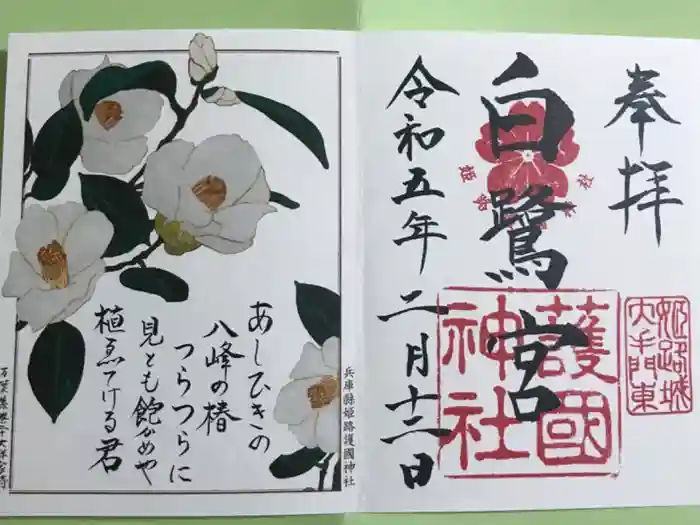 奉拝
白鷺宮
令和五年二月十二日
護國
神社
姫路城
大手門東
あしひきの
八峰の椿
つらつらに
見とも飽かめや
植ゑてける君
兵庫縣姫路護國神社